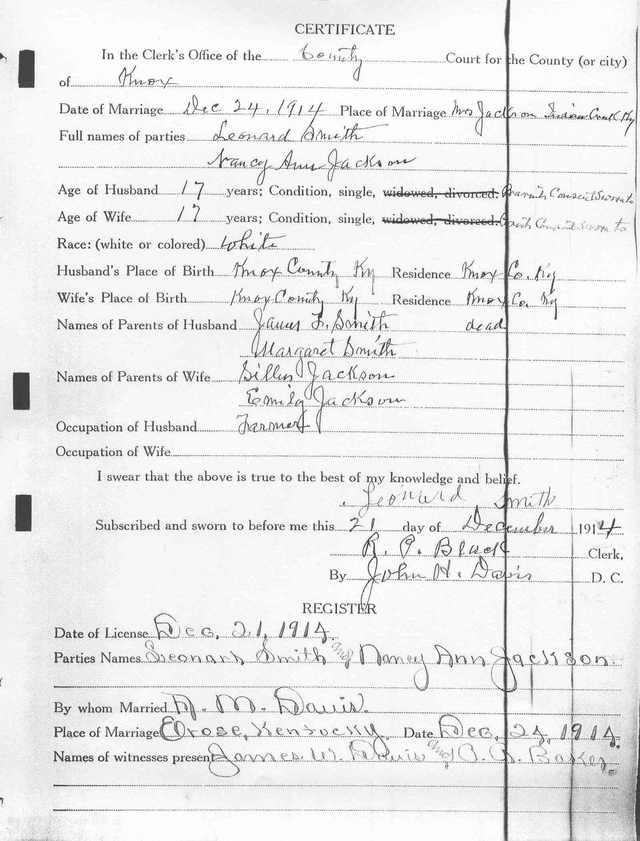 CERTIFICATE
In the Clerk's Office of the County Court for the County (or city)
of Knox
Date of Marriage Dec 24, 1914 Place of Marriage Mrs Jackson Indian Creek Ky
Full names of parties Leonard Smith
Nancy Ann Jackson
Age of Husband 17 years; Condition, single, widowed, divorced. Parents Consent Sworn to
Age of Wife 17 years; Condition, single, widowed, divorced. Consent Sworn to
Race: (white or colored) White
Husband's Place of Birth Knox County Ky Residence Knox Co. Ky
Wife's Place of Birth Knox County Ky Residence Knox Co. Ky
Names of Parents of Husband James F. Smith dead
Margaret Smith
Names of Parents of Wife Jackson
Emily Jackson
Occupation of Husband Farmer
Occupation of Wife
I swear that the above is true to the best of my knowledge and belief.
Leonard Smith
Subscribed and sworn to before me this 21 day of December 1914
R. P. Black Clerk,
By John H. Davis D. C.
REGISTER
Date of License Dec, 21, 1914.
Parties Names Leonard Smith and Nancy Ann Jackson.
By whom Married M. Davis.
Place of Marriage Kentucky. Date Dec, 24, 1914.
Names of witnesses present James W. Davis and Baker.